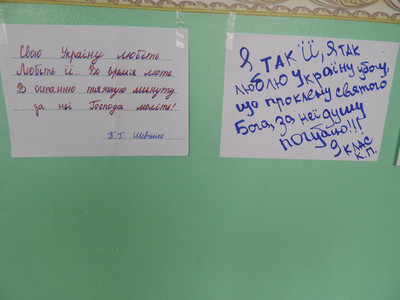 Свою Україну любіть
Любіть її. Во время люте
В останню тяжкую минуту
за неї Господа моліть!
Т.Г. Шевченко
Я ТАК ЇЇ, Я ТАК
ЛЮБЛЮ УКРАЇНУ убогу,
що проклену святого
Бога, за неї душу
погублю!!!
9 клас
К.П.